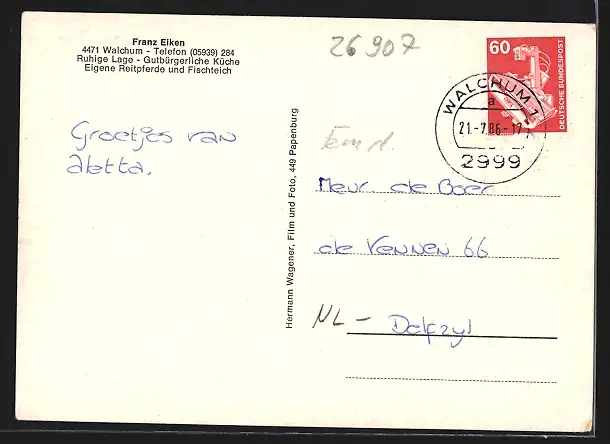 Franz Eiken
4471 Walchum - Telefon (05939) 284
Ruhige Lage - Gutbürgerliche Küche
Eigene Reitpferde und Fischteich
26907
60
DEUTSCHE BUNDESPOST
WALCHUM 1
a
21.-7.86-17
2999
Groetjes van
aletta.
Hermann Wagener, Film und Foto, 449 Papenburg
Fam
Meur de Boer
de Vennen 66
NL - Delfzyl